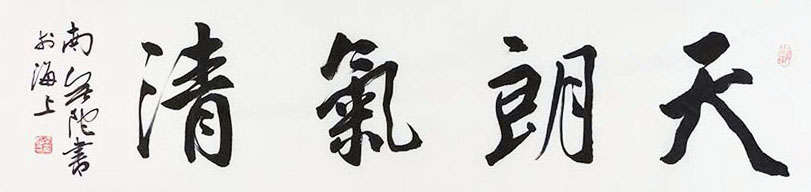 天朗氣清
南陀書
於海上